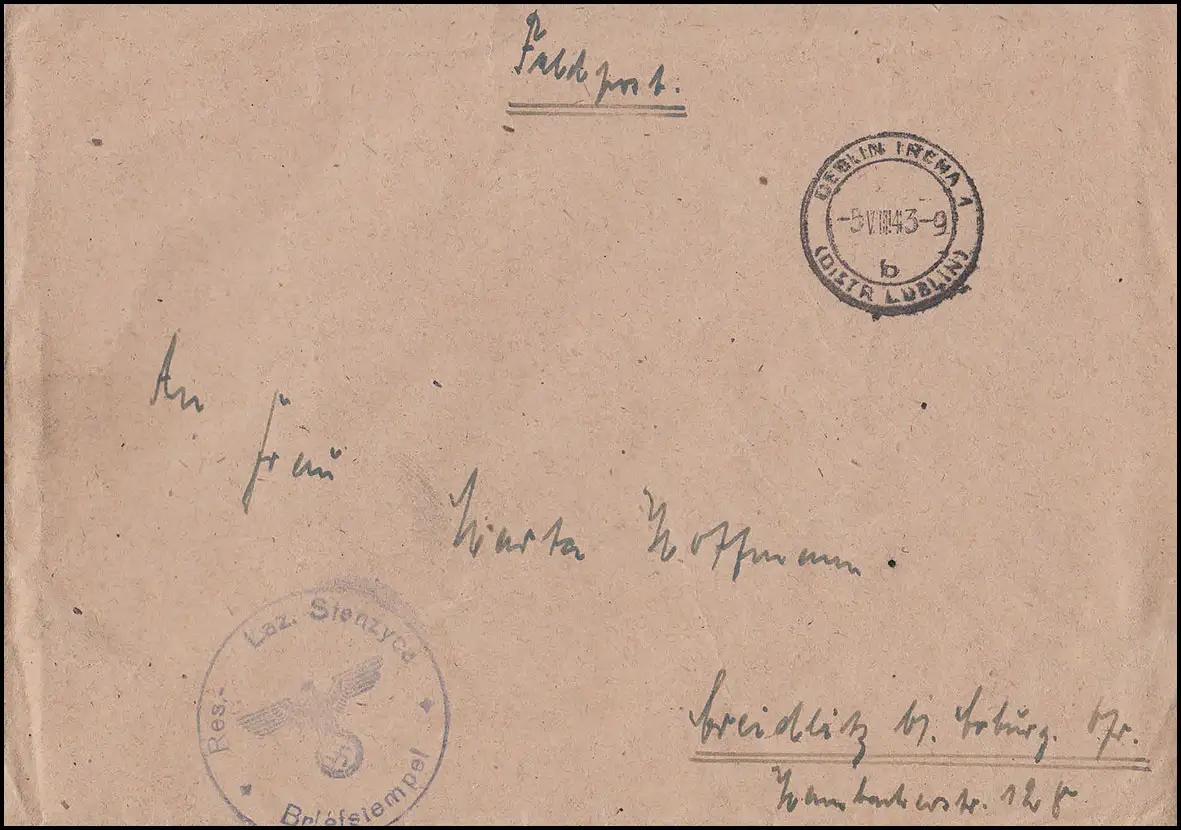 Feldpost.
DEBLIN IRENA 1
-5.VIII.43-9
b
(DISTR LUBLIN)
An
Frau
Marta Hoffmann.
Res.-Laz. Stenzyca
Briefstempel
Creidlitz b/. Coburg. Ofr.
12